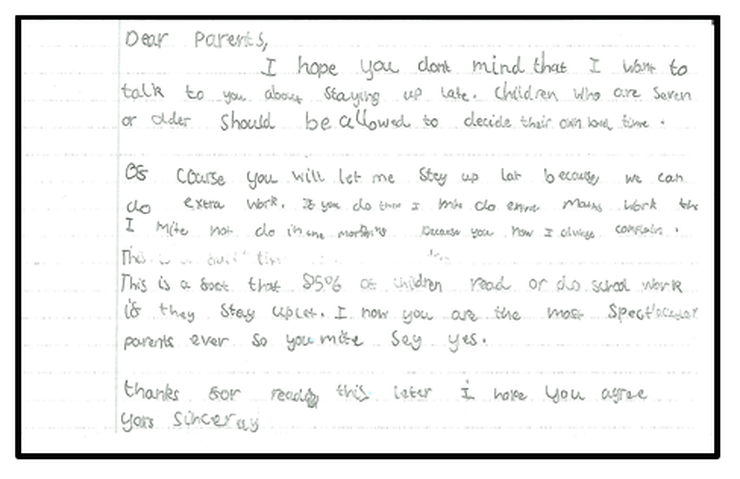 Dear Parents,
I hope you dont mind that I want to
talk to you about staying up late. Children who are seven
or older should be allowed to decide their own time.
Of Coarse you will let me stay up lat because we can
do extra work. If you do then I mite do extra maths work
I mite not do in the morning because you now I always complain.
This is a
This is a fact that 85% of children read or do school work
if they stay uplet. I now you are the most
parents ever so you mite say yes.
thanks for reading this leter i hope you agree
yors sinceray